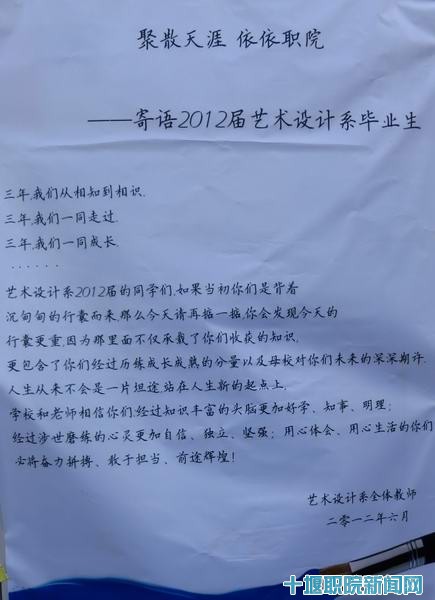 聚散天涯 依依职院
——寄语2012届艺术设计系毕业生
三年,我们从相知到相识.
三年,我们一同走过.
三年,我们一同成长.
......
艺术设计系2012届的同学们,如果当初你们是背着
沉甸甸的行囊而来,那么今天请再掂一掂,你会发现今天的
行囊更重,因为那里面不仅承载了你们收获的知识,
更包含了你们经过历练成长成熟的分量以及母校对你们未来的深深期许.
人生从来不会是一片坦途,站在人生新的起点上,
学校和老师相信你们经过知识丰富的头脑更加好学、知事、明理;
经过涉世磨练的心灵更加自信、独立、坚强;用心体会、用心生活的你们
必将奋力拼搏、敢于担当、前途辉煌!
艺术设计系全体教师
二零一二年六月
十堰职院新闻网